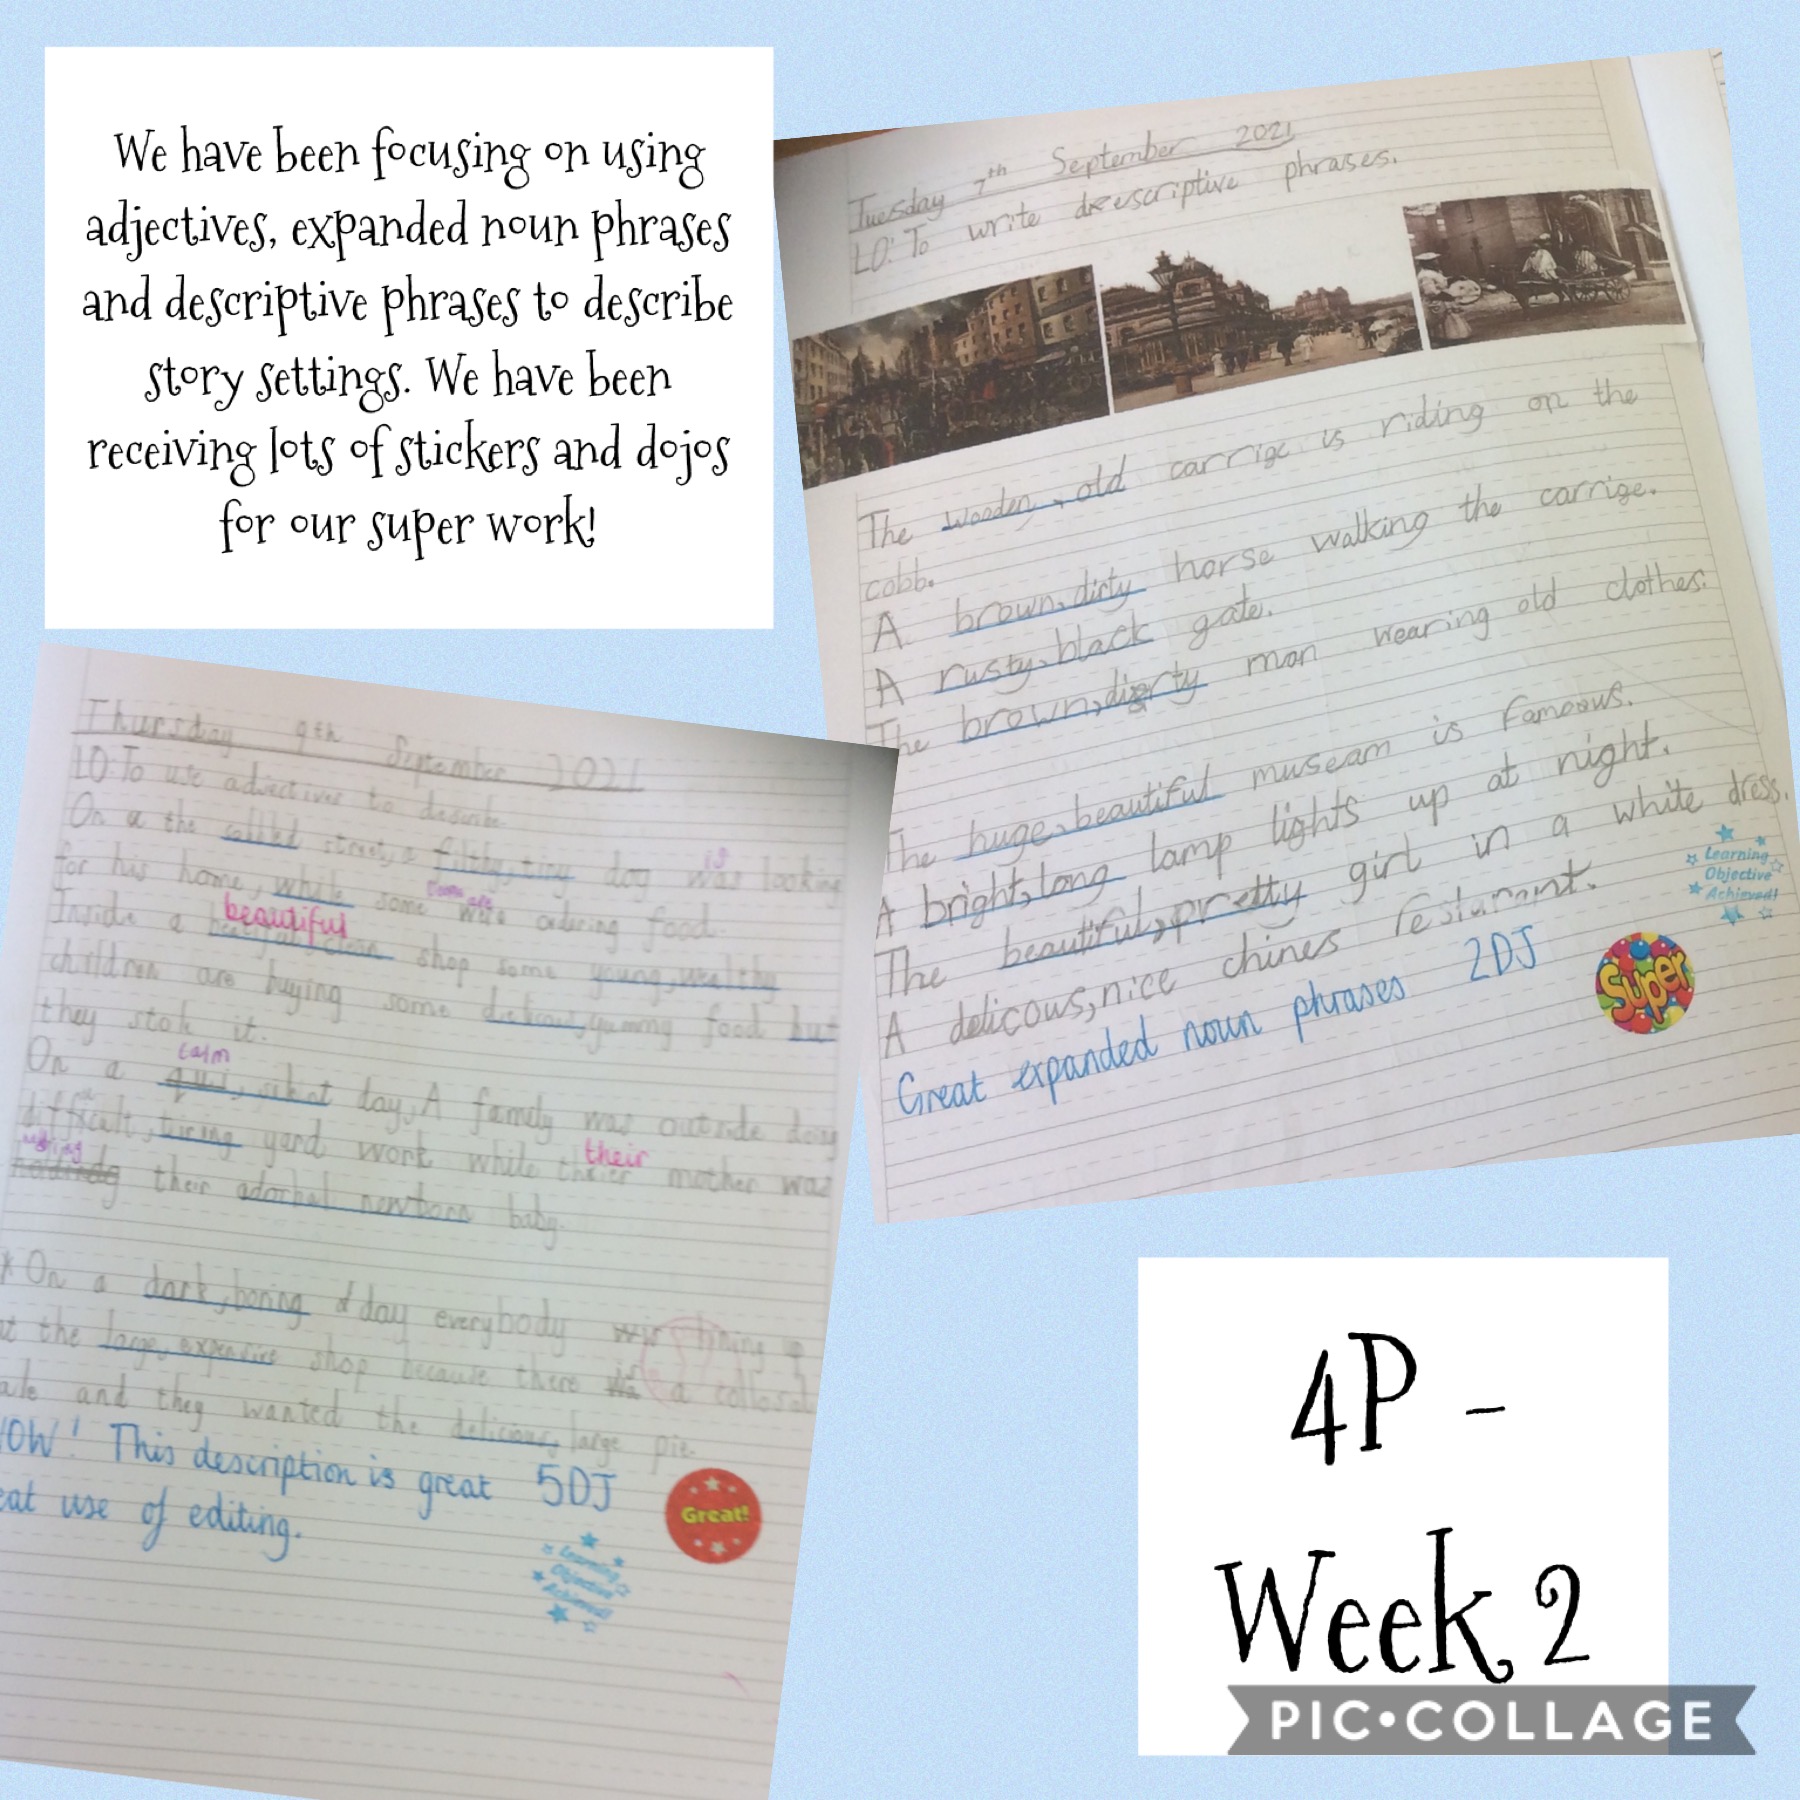 We have been focusing on using
adjectives, expanded noun phrases
and descriptive phrases to describe
story settings. We have been
receiving lots of stickers and dojos
for our super work!
Tuesday 7th September 2021
LO: To write descriptive phrases.
The wooden, old carrige is riding on the
cobb.
A brown, dirty horse walking the carrige.
A rusty, black gate.
The brown, dirty man wearing old clothes.
The huge, beautiful museam is famoous.
A bright, long lamp lights up at night.
The beautiful, pretty girl in a white dress.
A delicous, nice chines resturant.
Great expanded noun phrases 2DJ
Learning
Objective
Achieved!
Super
Thursday 9th September 2021
LO: To use adjectives to describe
On a the cobbled street, a filthy, tiny dog was is looking
for his home, while some were are ordering food.
Inside a beautiful clean shop some young, wealthy
children are buying some yummy food but
they stole it.
On a calm day, A family was outside doing
difficult, tiring yard work while their mother was
their newborn baby.
On a dark, boring day everybody lining up
at the large, expensive shop because there a collosal
and they wanted the delicious, large pie.
WOW! This description is great 5DJ
use of editing.
Great!
Learning
Objective
Achieved!
4P -
Week 2
PIC•COLLAGE